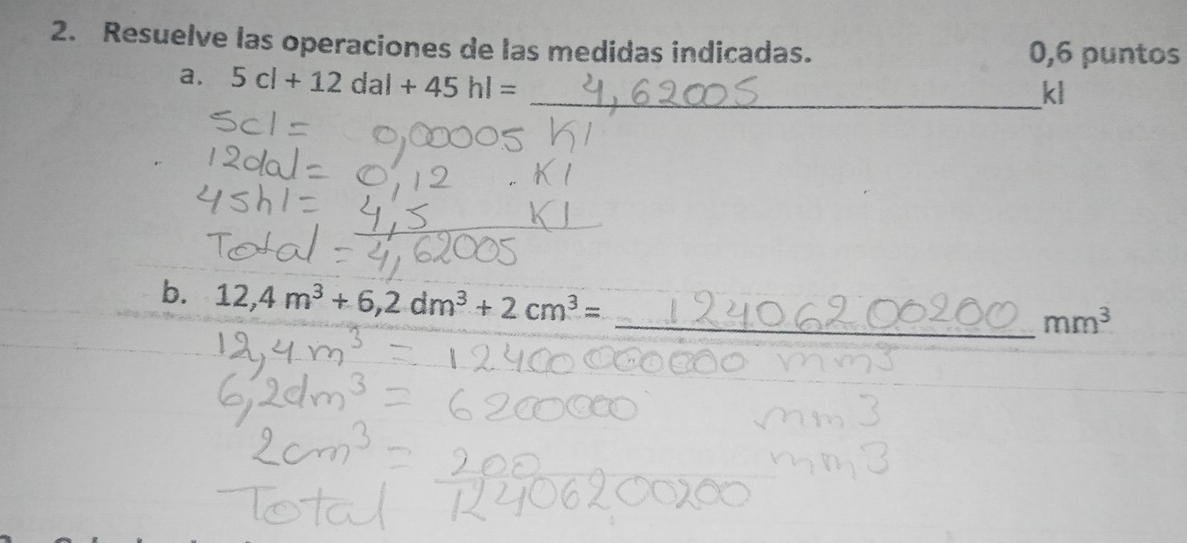 2. Resuelve las operaciones de las medidas indicadas. 0,6 puntos
a. 5 cl + 12 dal + 45 hl = 4,62005 kl
5cl = 0,00005 Kl
12dal = 0,12 . Kl
45hl = 4,5 Kl
Total = 4,62005
b. 12,4 m³ + 6,2 dm³ + 2 cm³ = 12406200200 mm³
12,4m³ = 12400000000 mm3
6,2dm³ = 6200000 mm3
2cm³ = 200 mm3
Total 12406200200